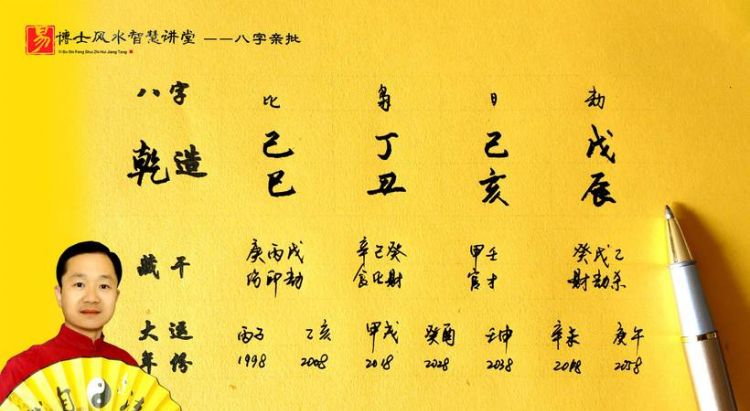 易 博士风水智慧讲堂 ——八字亲批
Yi Bo Shi Feng Shui Zhi Hui Jiang Tang
八字 比 枭 日 劫
己 丁 己 戊
乾造
巳 丑 亥 辰
庚丙戊 辛己癸 甲壬 癸戊乙
藏干
伤印劫 食比财 官才 财劫杀
大运 丙子 乙亥 甲戌 癸酉 壬申 辛未 庚午
年份 1998 2008 2018 2028 2038 2048 2058